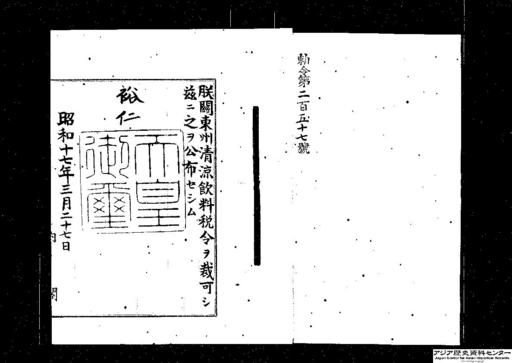 勅令第二百五十七號
朕關東州清涼飲料税令ヲ裁可シ
茲ニ之ヲ公布セシム
裕仁
天皇
御璽
昭和十七年三月二十七日
内閣
アジア歴史資料センター
Japan Center for Asian Historical Records